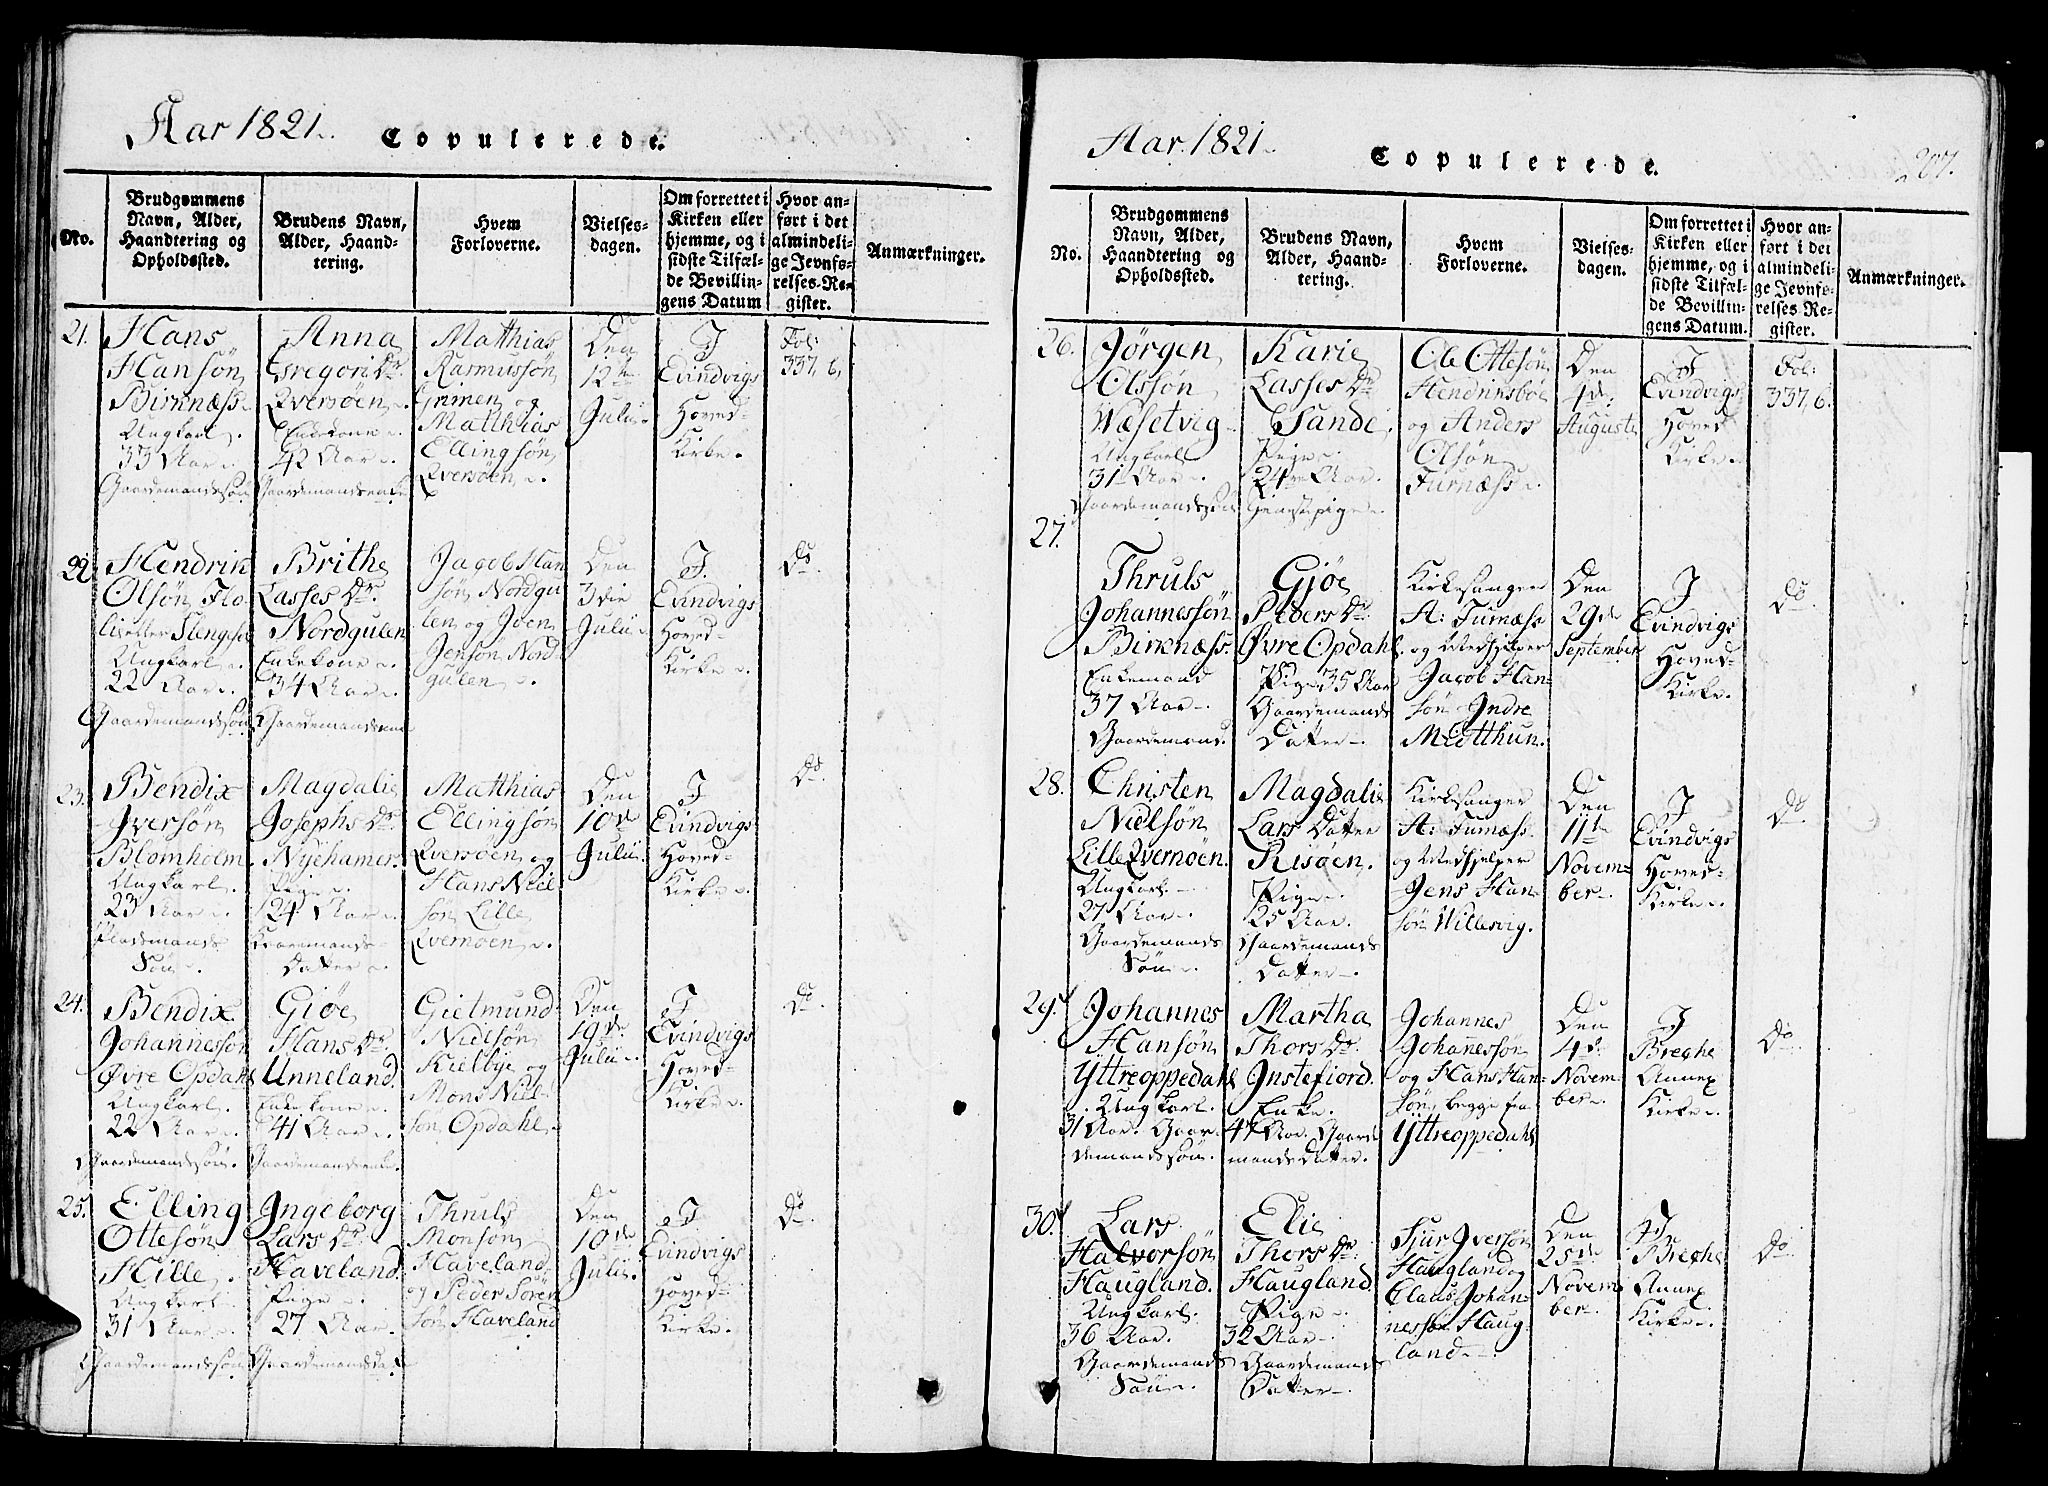 Aar 1821. Copulerede.
No.
Brudgommens
Navn, Alder,
Haandtering og
Opholdssted.
Brudens Navn,
Alder, Haand-
tering.
Hvem
Forloverne.
Vielses-
dagen.
Om forrettet i
Kirken eller
hjemme, og i
sidste Tilfæl-
de Bevillin-
gens Datum
Hvor an-
ført i det
almindeli-
ge Jevnfø-
relses-Re-
gister.
Anmærkninger.
21.
Hans
Hansøn
Birknæss.
Ungkarl.
33 Aar.
Gaardemandssøn
Anna
Gregori Dr.
Qversøen.
Enkekone.
42 Aar.
Gaardemandsenke
Matthias
Rasmussøn
Grimen og
Matthias
Ellingsøn
Qversøen.
Den
12te
Julii.
I
Evindvigs
Hoved-
Kirke.
Fol:
337, 6,
22
Hendrik
Olsøn Flo-
Ungkarl.
22 Aar.
Gaardemandssøn
Brithe
Lasses Dr.
Nordgulen
Enkekone.
34 Aar.
Jacob Han
søn Nordgu
len og Joen
Jensøn Nord-
gulen.
Den
3die
Julii.
I.
Evindvigs
Hoved-
Kirke.
Do.
23.
Bendix
Iversøn
Blomholm
Ungkarl.
23 Aar.
Pladsmands
Søn.
Magdalie
Josephs Dr.
Nyehamer.
Pige.
24 Aar.
Datter.
Matthias
Ellingsøn
Qversøen og
Hans Niel-
søn Lille
Qvernøen.
Den
10de
Julii.
I
Evindvigs
Hoved-
Kirke.
Do.
24.
Bendix
Johannessøn
Øvre Opdahl
Ungkarl.
22 Aar.
Gaardemandssøn.
Giøe
Hans Dr.
Unneland.
Enkekone.
41 Aar.
Gaardemandsenke.
Gietmund
Nielsøn
Kielbye og
Mons Niel-
søn Opdahl.
Den
19de
Julii.
I
Evindvigs
Hoved-
Kirke.
Do.
25.
Elling
Ottesøn
Hille.
Ungkarl.
31 Aar.
Gaardemandssøn
Ingeborg
Lars Dr.
Haveland.
Pige.
27 Aar.
Gaardemandsdat
Thruls
Monsøn
Haveland
og Peder Sören
søn Haveland
Den
10de
Julii.
I
Evindvigs
Hoved-
Kirke.
Do.
Aar 1821. Copulerede. 207.
No.
Brudgommens
Navn, Alder,
Haandtering og
Opholdssted.
Brudens Navn,
Alder, Haand-
tering.
Hvem
Forloverne.
Vielses-
dagen.
Om forrettet i
Kirken eller
hjemme, og i
sidste Tilfæl-
de Bevillin-
gens Datum.
Hvor an-
ført i det
almindeli-
ge Jevnfø-
relses Re-
gister.
Anmærkninger.
26.
Jørgen
Olssøn
Wæsetvig
Ungkarl
31 Aar.
Gaardemandssøn
Karie
Lasses Dr.
Sande.
Pige.
24re Aar.
Ole Ottesøn
Hendriksbøe
og Anders
Olsøn
Furnæss.
Den
4de
Augusti
I
Evindvigs
Hoved
Kirke.
Fol:
337, 6.
27.
Thruls
Johannessøn
Birknæss.
Enkemand
37 Aar.
Gaardemand.
Gjøe
Peders Dr.
Øvre Opdahl.
Pige 35 Aar
Gaardemands
Datter.
Kirkesanger
A: Furnæss
og Medhjelper
Jacob Han-
søn Yndre
Mietthun.
Den
29de
September
I
Evindvigs
Hoved-
Kirke.
Do.
28.
Christen
Nielsøn
Lille Qvernøen.
Ungkarl
27 Aar.
Gaardemands
Søn.
Magdalie
Lars Datter
Risøen.
Pige.
25 Aar.
Gaardemands
Datter.
Kirkesanger
A: Furnæss.
og Medhjelper
Jens Han-
søn Willesvig.
Den
11te
Novem-
ber.
I
Evindvigs
Hoved-
Kirke.
Do.
29.
Johannes
Hansøn
Yttreoppedahl
Ungkarl.
31 Aar. Gaar-
demandssøn.
Martha
Thors Dr.
Instefiord.
Enke.
47 Aar. Gaarde
mandsdatter.
Johannes
Johannessøn
og Hans Han-
søn, begge fra
Yttreoppedahl
Den
4de
Novem-
ber.
I
Breche
Annex
Kirke.
Do.
30.
Lars
Halvorsøn
Haugland.
Ungkarl.
36 Aar.
Gaardemands
Søn.
Elie
Thers Dr.
Haugland
Pige.
32 Aar.
Gaardemands
Datter.
Siur Iversøn
Haugland og
Claus Johan-
nessøn Haug-
land.
Den
25de
Novem
ber.
I
Breche
Annex
Kirke.
Do.